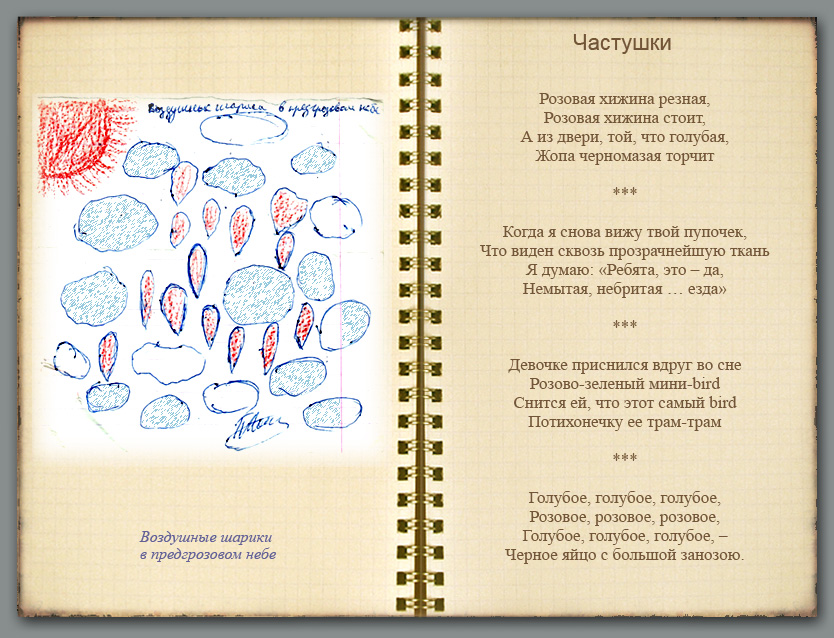 Воздушные шарики в предгрозовом небе
Воздушные шарики
в предгрозовом небе
Частушки
Розовая хижина резная,
Розовая хижина стоит,
А из двери, той, что голубая,
Жопа черномазая торчит
***
Когда я снова вижу твой пупочек,
Что виден сквозь прозрачнейшую ткань
Я думаю: «Ребята, это – да,
Немытая, небритая … езда»
***
Девочке приснился вдруг во сне
Розово-зеленый мини-bird
Снится ей, что этот самый bird
Потихонечку ее трам-трам
***
Голубое, голубое, голубое,
Розовое, розовое, розовое,
Голубое, голубое, голубое, –
Черное яйцо с большой занозою.